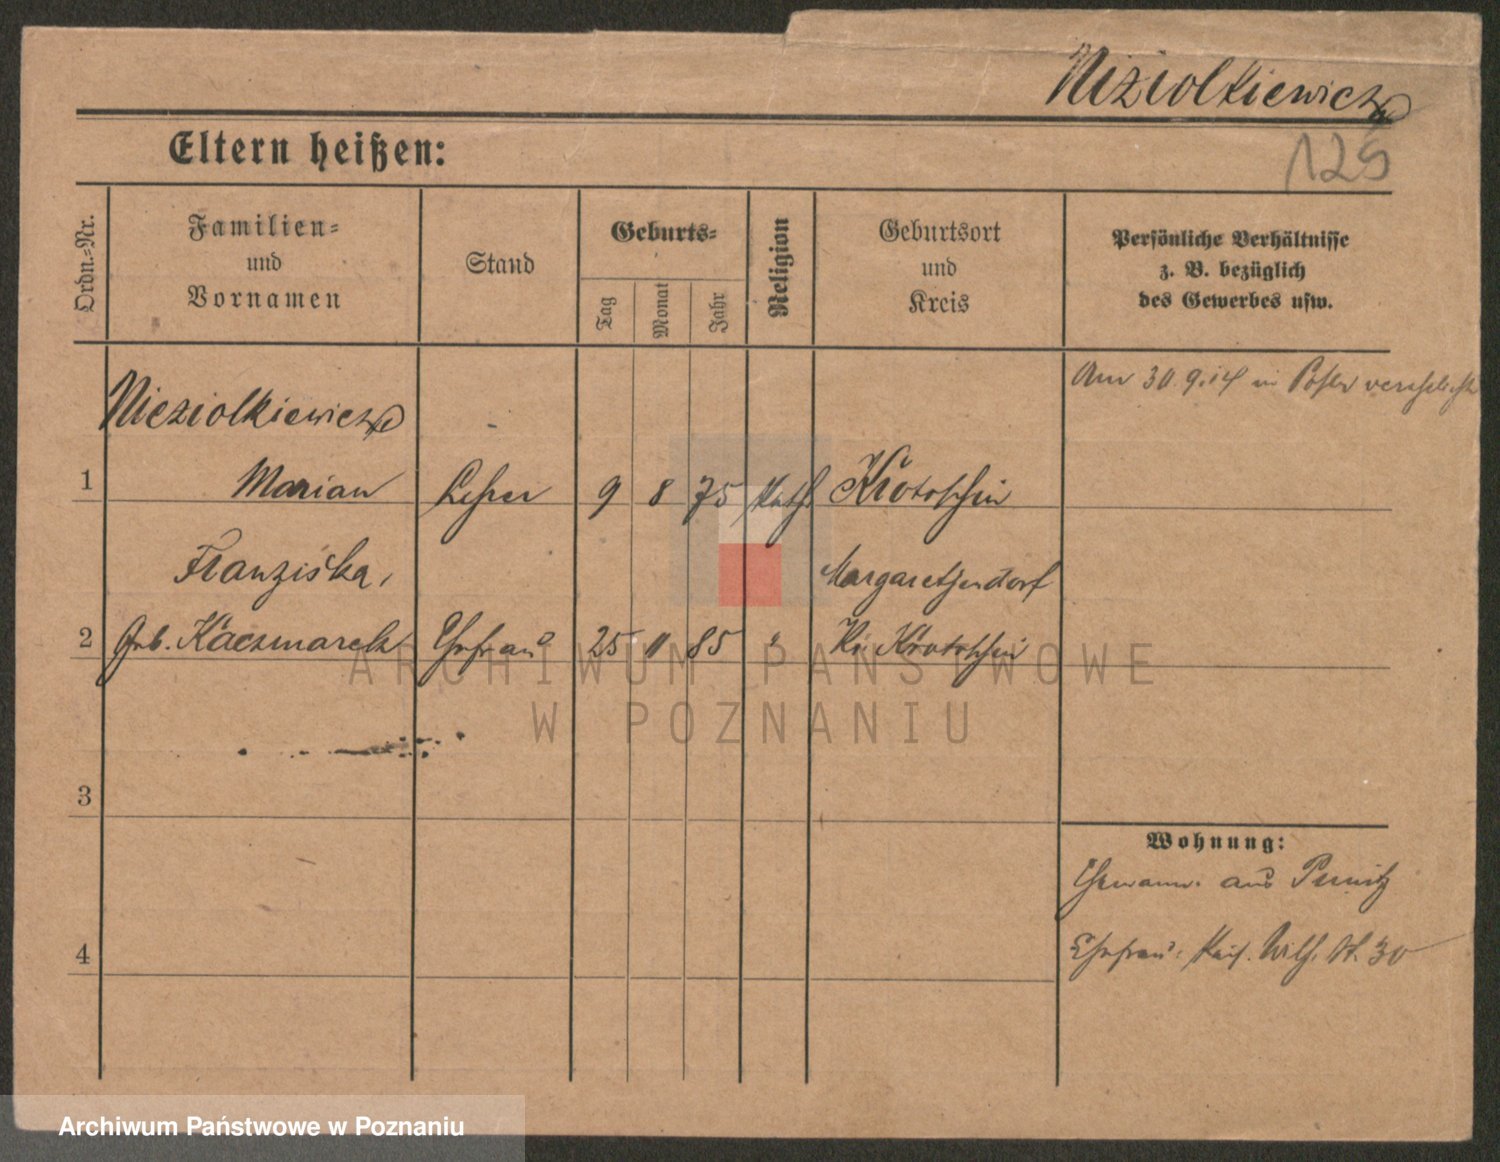 Niziolkiewicz
125
Eltern heißen:
Ordn.=Nr.
Familien=
und
Vornamen
Stand
Geburts=
Tag
Monat
Jahr
Religion
Geburtsort
und
Kreis
Persönliche Verhältnisse
z. B. bezüglich
des Gewerbes usw.
Am 30.9.14 in Posen verehelicht
Nieziolkiewicz
1 Marian Lehrer 9 8 75 kath. Krotoschin
Franziska, Margaretendorf
2 geb. Kaczmarek Ehefrau 25 11 85 " Kr. Krotoschin
3
Wohnung:
Ehemann. aus Punitz
4
Ehefrau: Kais. Wilh. St. 30
ARCHIWUM PAŃSTWOWE
W POZNANIU
Archiwum Państwowe w Poznaniu